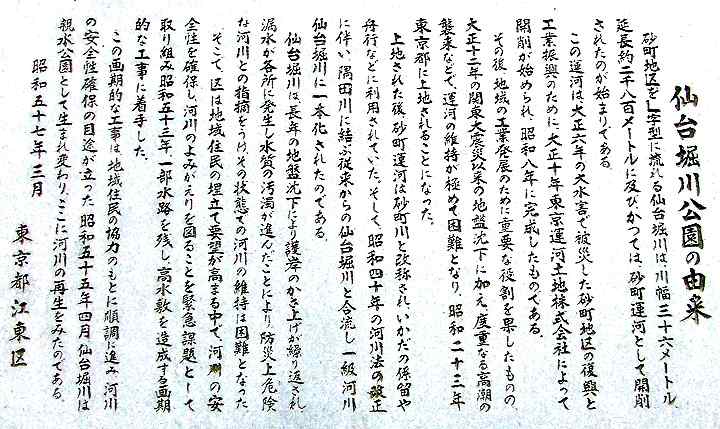 仙台堀川公園の由来
砂町地区をL字型に流れる仙台堀川は、川幅三十六メートル、
延長約二千八百メートルに及び、かつては、砂町運河として開削
されたのが始まりである。
この運河は大正六年の大水害で被災した砂町地区の復興と
工業振興のために大正十年東京運河土地株式会社によって
開削が始められ、昭和八年に完成したものである。
その後、地域の工業発展のために重要な役割を果したものの、
大正十二年の関東大震災以来の地盤沈下に加え、度重なる高潮の
襲来などで、運河の維持が極めて困難となり、昭和二十三年
東京都に上地されることになった。
上地された後、砂町運河は砂町川と改称され、いかだの係留や
舟行などに利用されていた。そして、昭和四十年の河川法の改正
に伴い、隅田川に結ぶ従来からの仙台堀川と合流し、一級河川
仙台堀川に一本化されたのである。
仙台堀川は、長年の地盤沈下により護岸のかさ上げが繰り返され
漏水が各所に発生し水質の汚濁が進んだことにより、防災上危険
な河川との指摘をうけ、その状態での河川の維持は困難となった
そこで、区は地域住民の埋立て要望が高まる中で、河川の安
全性を確保し、河川のよみがえりを図ることを緊急課題として
取り組み、昭和五十三年、一部水路を残し、高水敷を造成する画期
的な工事に着手した。
この画期的な工事は、地域住民の協力のもとに順調に進み、河川
の安全性確保の目途が立った昭和五十五年四月、仙台堀川は
親水公園として生まれ変わり、ここに河川の再生をみたのである。
昭和五十七年三月
東京都江東区